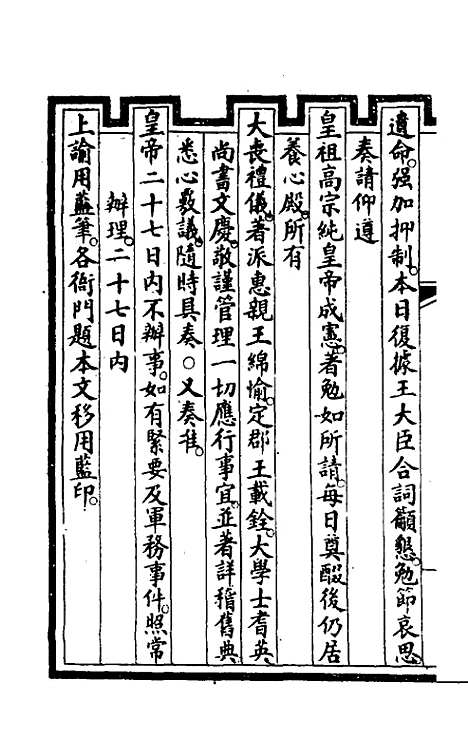 遺命。强加抑制。本日復據王大臣合詞籲懇。勉節哀思
奏請仰遵
皇祖高宗純皇帝成憲。著勉如所請。每日奠醊後仍居
養心殿。所有
大喪禮儀。著派惠親王綿愉。定郡王載銓。大學士耆英。
尚書文慶。敬謹管理一切應行事宜。並著詳稽舊典
悉心敷議。隨時具奏○又奏准。
皇帝二十七日内不辦事。如有緊要及軍務事件。照常
辦理。二十七日内
上諭用藍筆。各衙門題本文移用藍印。